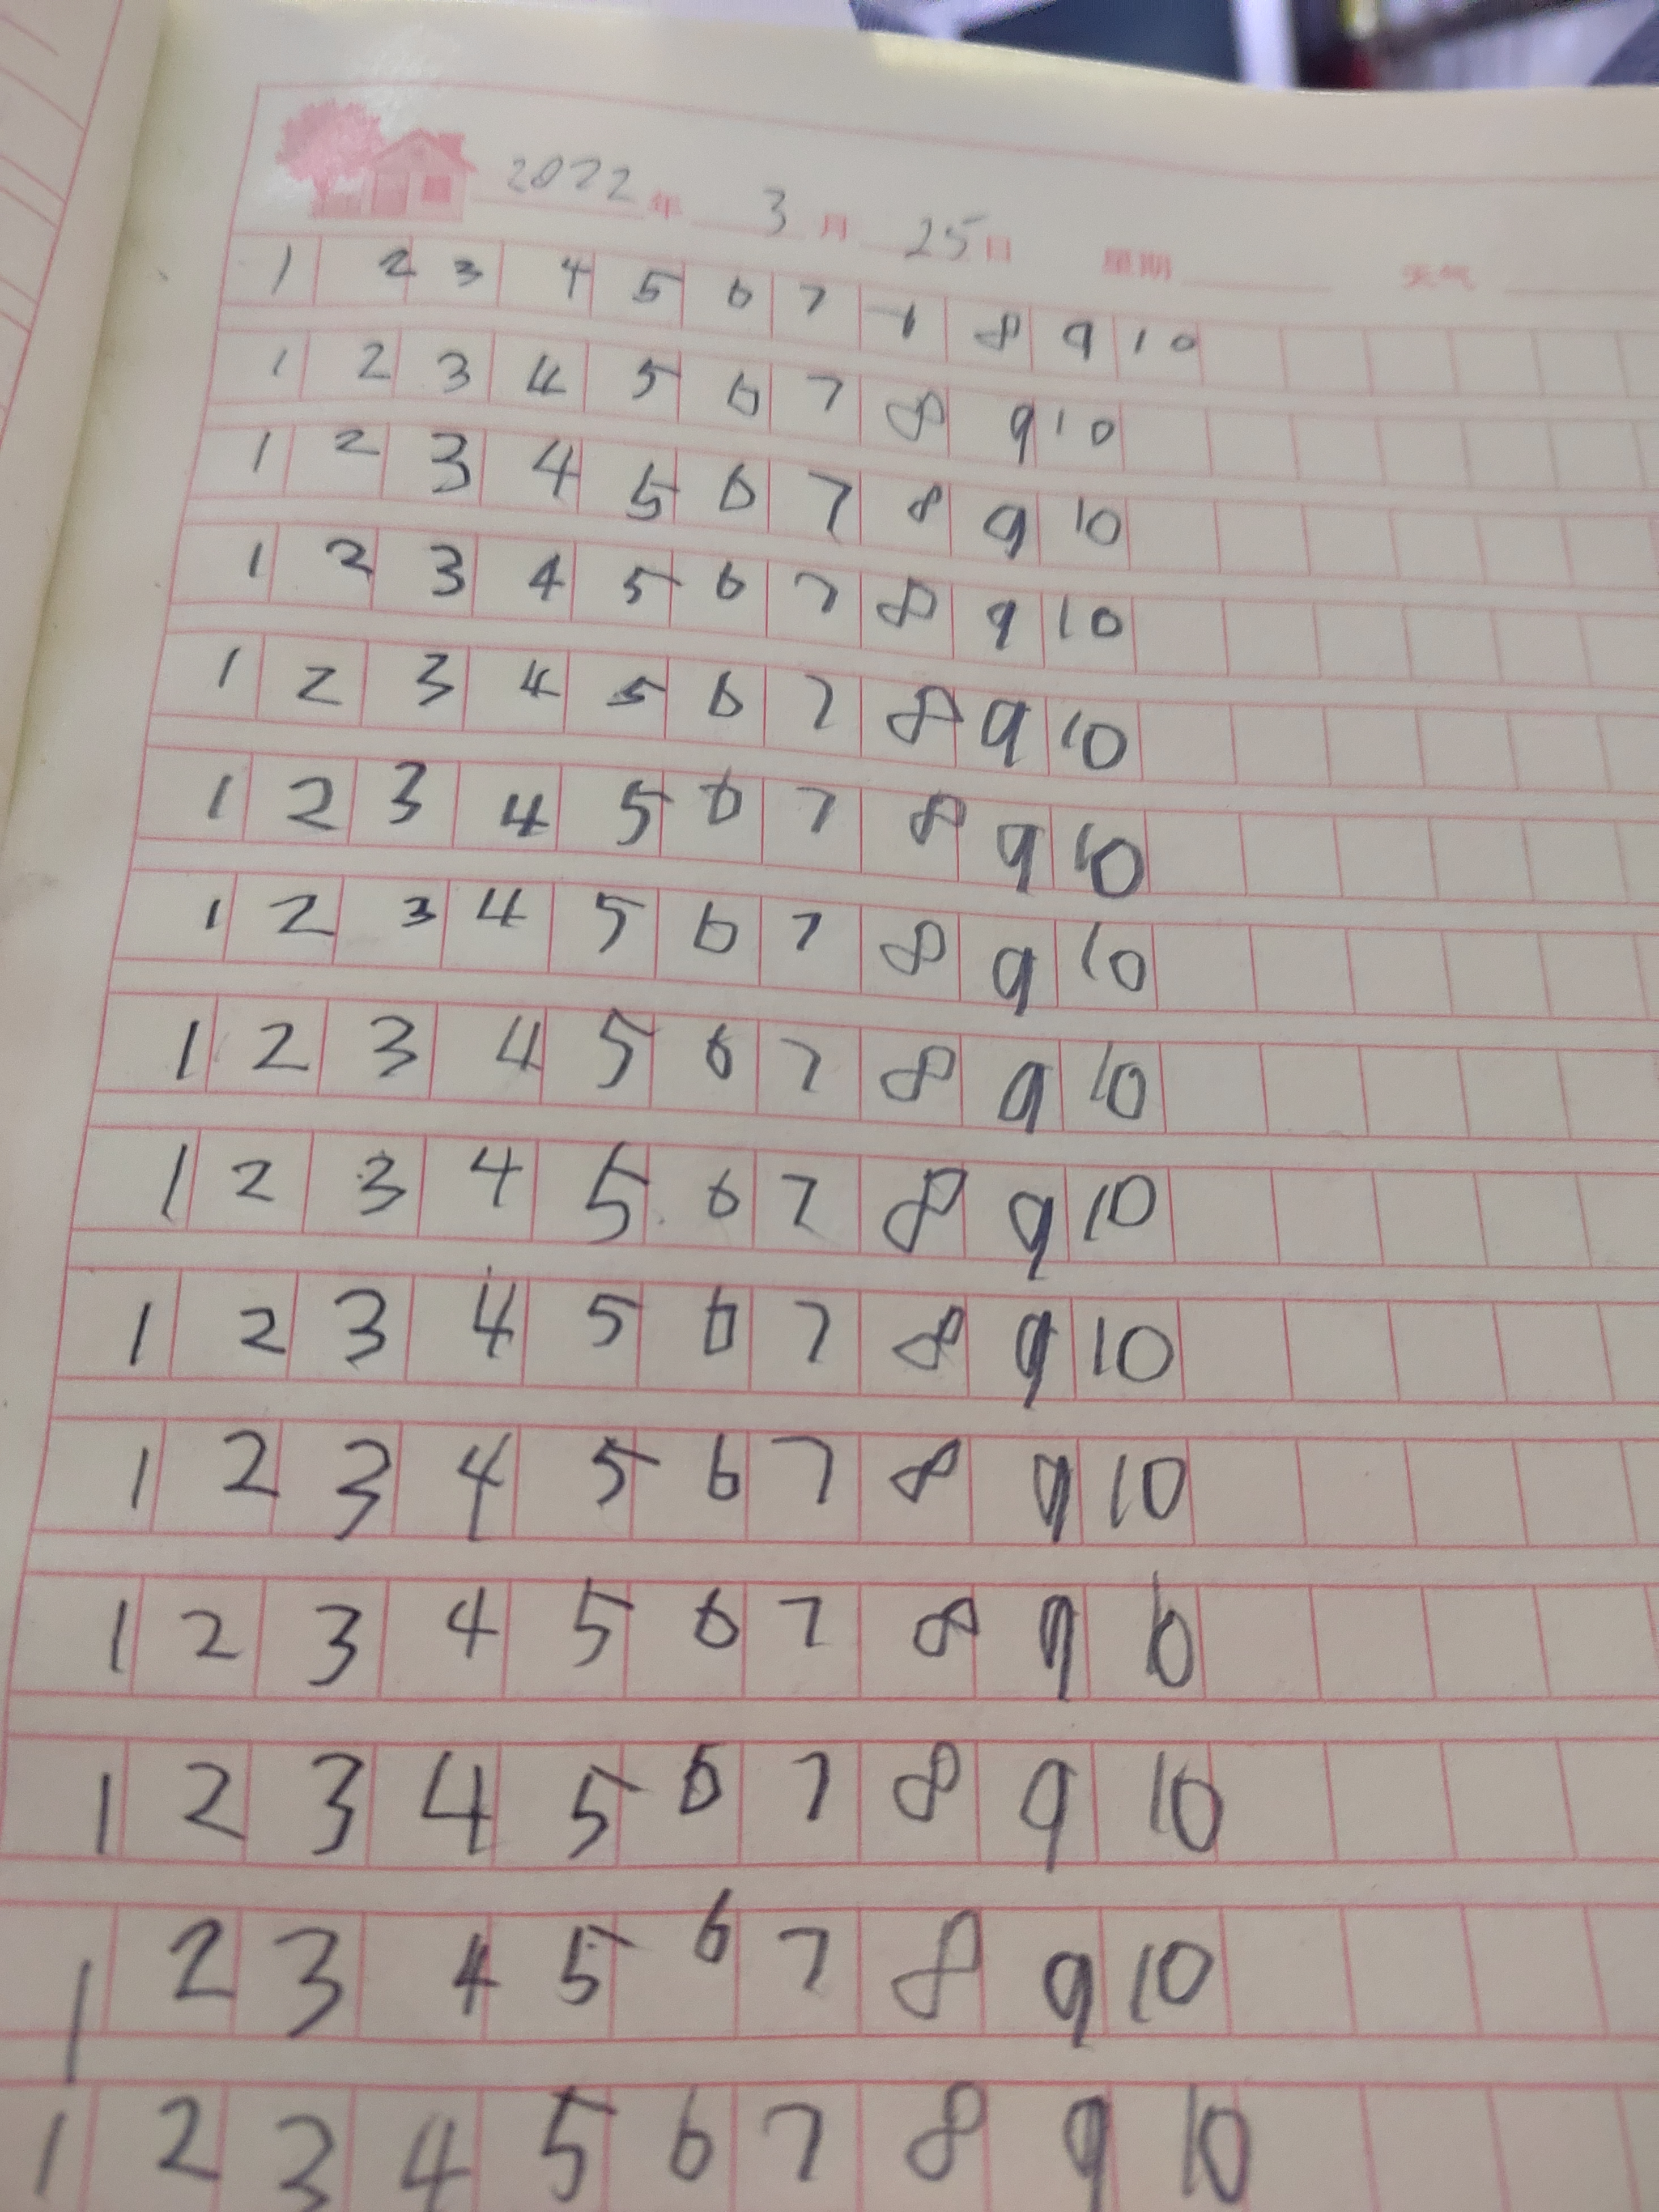 2022年 3月 25日 星期 天气
1 2 3 4 5 6 7 1 8 9 10
1 2 3 4 5 6 7 8 9 10
1 2 3 4 5 6 7 8 9 10
1 2 3 4 5 6 7 8 9 10
1 2 3 4 5 6 7 8 9 10
1 2 3 4 5 6 7 8 9 10
1 2 3 4 5 6 7 8 9 10
1 2 3 4 5 6 7 8 9 10
1 2 3 4 5 6 7 8 9 10
1 2 3 4 5 6 7 8 9 10
1 2 3 4 5 6 7 8 9 10
1 2 3 4 5 6 7 8 9 10
1 2 3 4 5 6 7 8 9 10
1 2 3 4 5 6 7 8 9 10
1 2 3 4 5 6 7 8 9 10